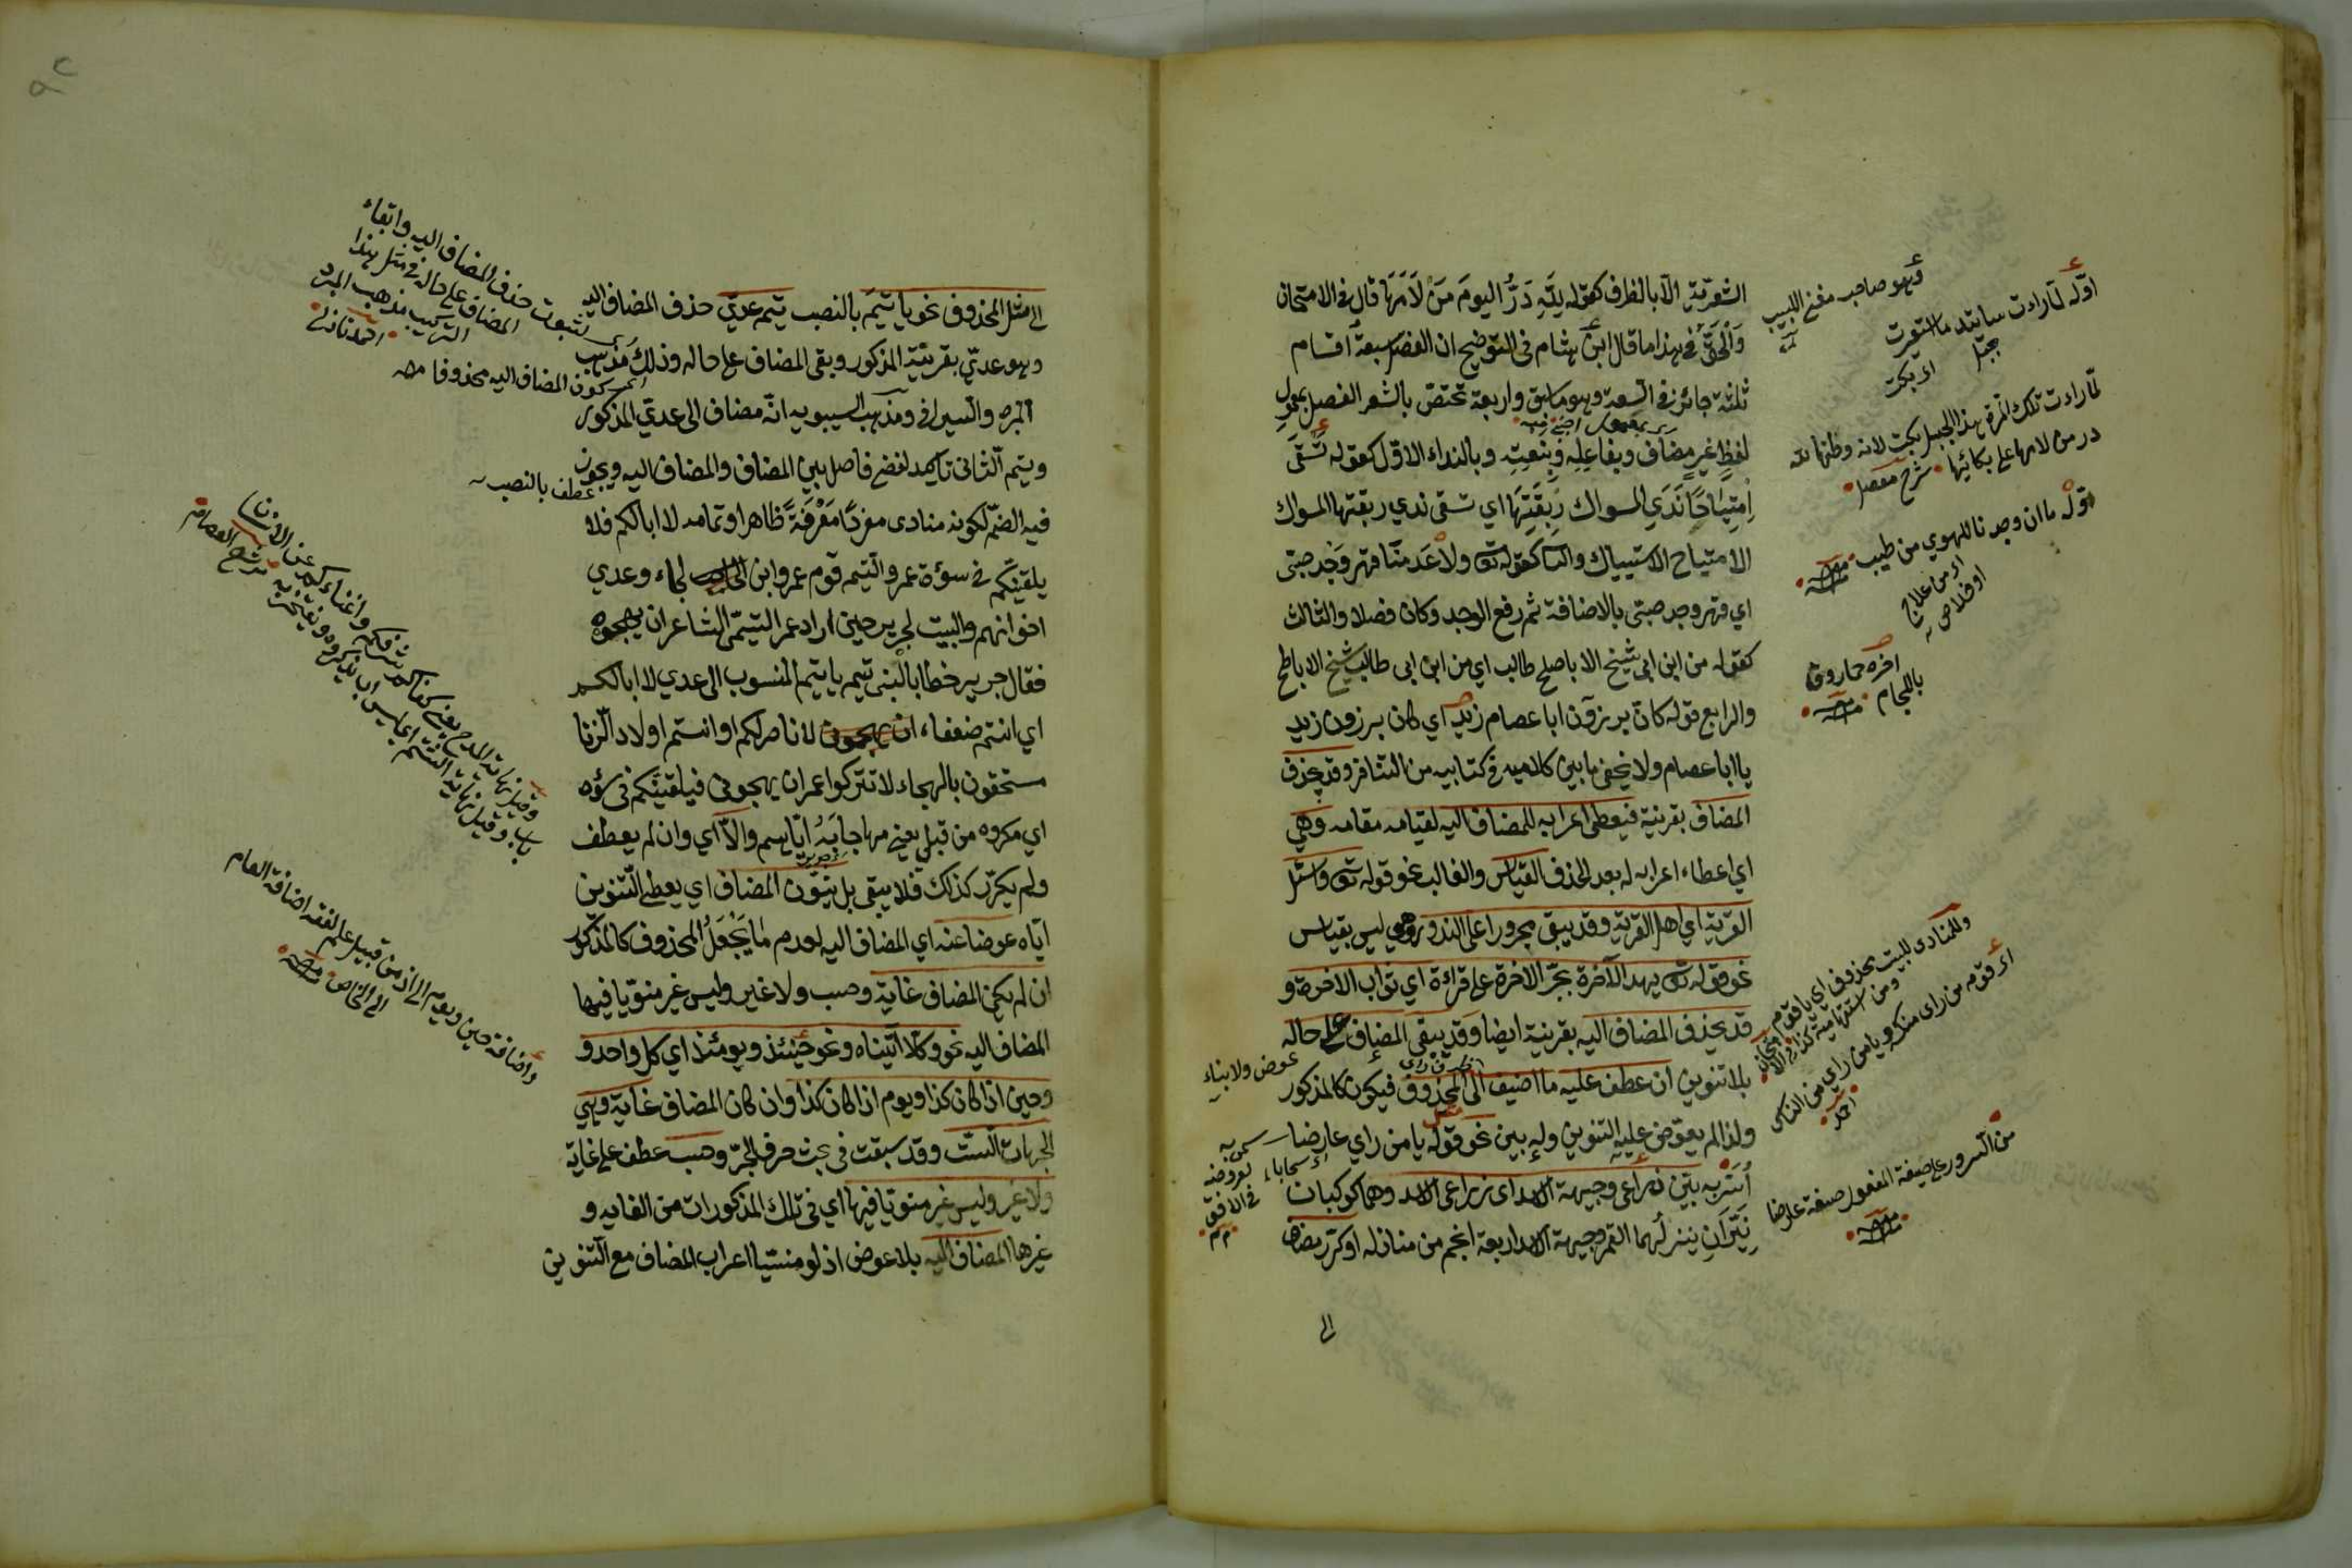 الشعرية الا بالظرف كقوله لله در اليوم من لامها قال في الامتحان
والحق في هذا ما قال ابن هشام في التوضيح ان الفصل سبعة اقسام
ثلثة جائز في السعة وهو ما سبق واربعة تختص بالشعر الفصل بمعمول
لفظ غير مضاف وبفاعله وبنعت وبالنداء الاول كقوله تسقى
امتياحا ندى المسواك ريقتها اي تسقى ندي ريقتها المسواك
الامتياح الاستياك والثا كقوله ولا عدمنا قهر وجد صبتي
اي قهر وجد صبتي بالاضافة ثم رفع الوجد وكان فصلا والثالث
كقوله من ابن ابي شيخ الاباطح طالب اي من ابن ابي طالب شيخ الاباطح
والرابع قوله كان برزون ابا عصام زيد اي كان برزون زيد
يا ابا عصام ولا يخفى ما بين كلاميه في كتابيه من التنافر وقد يحذف
المضاف بقرينة فيعطى اعرابه للمضاف اليه لقيامه مقامه وهي
اي اعطاء اعرابه له بعد الحذف القياس والغالب نحو قوله تعه واسئل
القرية اي اهل القرية وقد يبقى مجرورا على الندور وهي ليس بقياس
نحو قوله يريد الآخرة بجر الاخرة على قرائة اي ثواب الاخرة و
قد يحذف المضاف اليه بقرينة ايضا وقد يبقى المضاف على حاله
بلا تنوين ان عطف عليه ما اضيف الى المحذوف فيكون كالمذكور
ولذا لم يعوض عليه التنوين وله بين نحو قوله يا من راي عارضا
أسر به بين ذراعي وجبهة الاسد اي ذراعي الاسد وهما كوكبان
نيران ينزلهما القمر وجبهة الاسد اربعة انجم من منازله او كرر مضاف
الى
وهو صاحب مغنى اللبيب
اوله لما رات ساتيد ما استعبرت
جبل
اي بكت
لما رات تلك المرة هذا الجبل بكت لانه وطنها لله
در من لامها على بكائها شرح مفصل
اوله ما ان وجدنا للهوي من طيب
اي من علاج
او خلاص
اخره حمار دق
باللجام
والمنادى للبيت محذوف اي يا قوم
ومن استفهامية كذا في الامتحان
اي قومه من راى منكم ويا من راي من الناس
احمد
من السرور على صيغة المفعول صفة عارضا
عوض ولا بناء
سحابا
في الافق
الى مثل المحذوف نحو يا تيم بالنصب يتم عدي حذف المضاف اليه
وهو عدي بقرينة المذكور وبقي المضاف على حاله وذلك مذهب
المبرد والسيرافي ومذهب السيبويه انه مضاف الى عدي المذكور
ويتم الثاني تاكيد لفظي فاصل بين المضاف والمضاف اليه ويجوز
عطف بالنصب
فيه الضم لكونه منادى مفردا معرفة ظاهرا وتمامه لا ابا لكم فلا
يلقينكم في سوءة عمر والتيم قوم عمرو ابن لجاء وعدي
اخوانهم والبيت لجرير حين اراد عمر التيمي الشاعر ان يهجوه
فقال جرير خطابا لبني تيم يا تيم المنسوب الى عدي لا ابا لكم
اي انتم ضعفاء لا ناصر لكم او انتم اولاد الزنا
مستحقون بالهجاء لا تتركوا عمران يهجوني فيلقينكم في سؤة
اي مكروه من قبلي يعني مهاجاته اياهم والا اي وان لم يعطف
ولم يكرر كذلك فلا يبقى بل ينون المضاف اي يعطى التنوين
اياه عوضا عنه اي المضاف اليه لعدم ما يجعل المحذوف كالمذكور
ان لم يكن المضاف غاية وحسب ولا غير وليس غير منويا فيها
المضاف اليه نحو وكلا اتيناه ونحو حينئذ ويومئذ اي كل واحد و
وحين اذا كان كذا ويوم اذا كان كذا وان كان المضاف غاية وهي
الجهات الست وقد سبقت في بحث حرف الجر وحسب عطف على غاية
ولا غير وليس غير منويا فيها اي في تلك المذكورات من الغاية و
غيرها المضاف اليه بلا عوض اذ لو منسيا اعراب المضاف مع التنوين
لثبوت حذف المضاف اليه وابقاء
المضاف على حاله في مثل هذا
التركيب مذهب المبرد
كون المضاف اليه محذوفا
واضافة حين ويوم الى اذ من قبيل علم الفقه اضافة العام
الى الخاص